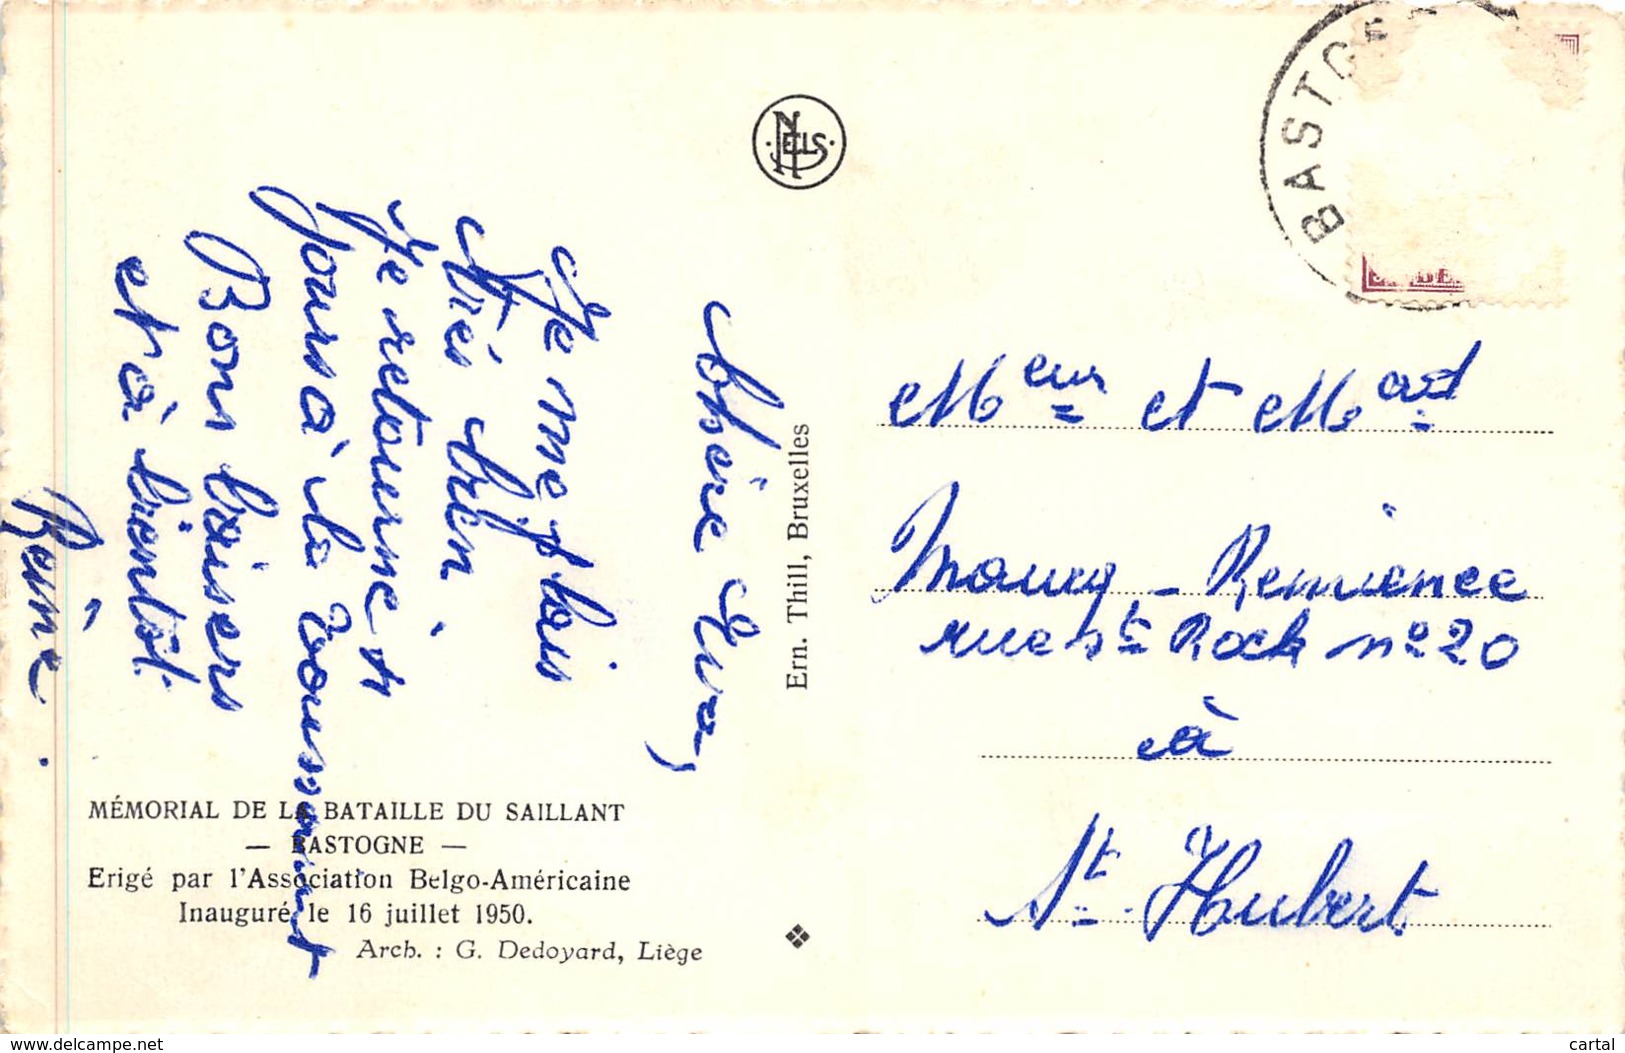 NELS
BASTOG
Chère Eva,
Je me plais
très bien
Je retourne 4
jours à la Toussaint
Bons baisers
et à bientôt.
Renée.
Ern. Thill, Bruxelles
Meur et Mad
Maury - Remience
rue St Roch n° 20
à
St. Hubert
MÉMORIAL DE LA BATAILLE DU SAILLANT
— BASTOGNE —
Erigé par l'Association Belgo-Américaine
Inauguré le 16 juillet 1950.
Arch. : G. Dedoyard, Liège
www.delcampe.net
cartal